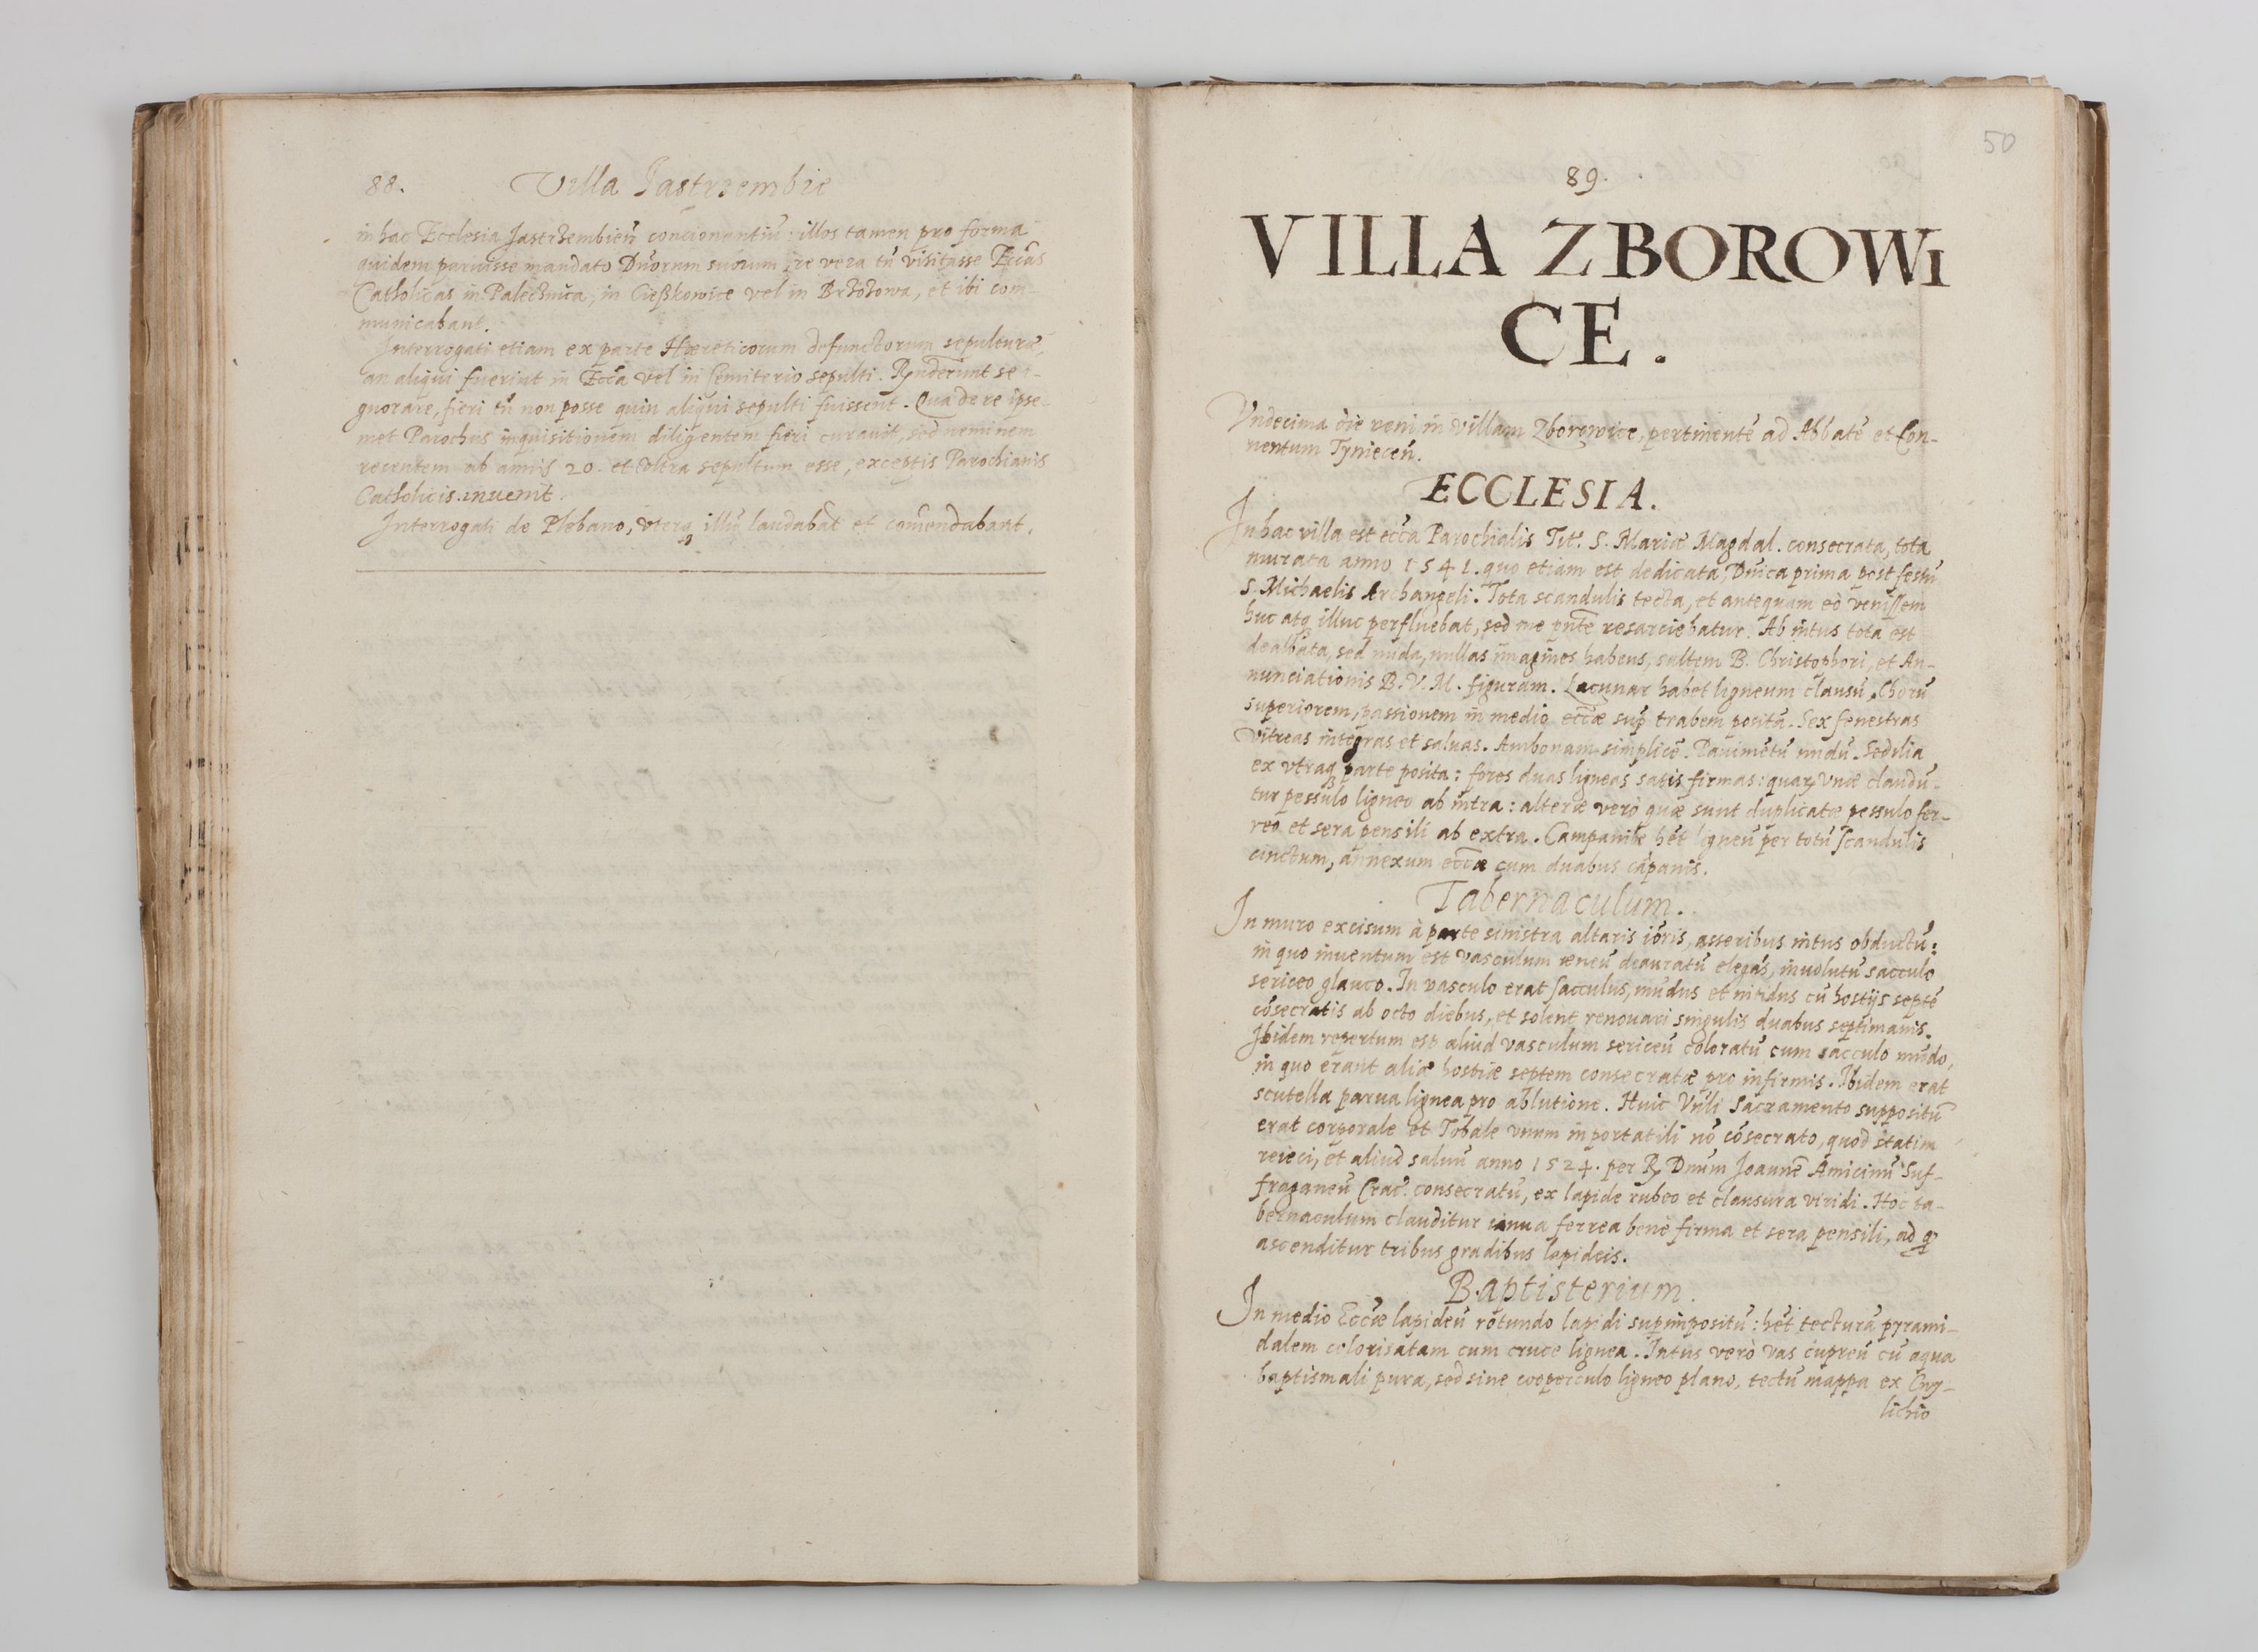 88. Villa Jastrzembie
in hac Ecclesia Jastrzembien̄ concionantiū: illos tamen pro forma
quidem paruisse mandato Dn̄orum suorum, re vera tn̄ visitasse Ecc̄as
Catholicas in Palecznica, in Cieszkowice vel in Brzozowa, et ibi com-
municabant.
Interrogati etiam ex parte Hæreticorum defunctorum sepulturæ,
an aliqui fuerint in Ecc̄a vel in Cemiterio sepulti. Rṇderunt se i-
gnorare, fieri tn̄ non posse quin aliqui sepulti fuissent. Qua de re ipse-
met Parochus inquisitionem diligentem fieri curauit, sed neminem
recentem ab annis 20. et vltra sepultum esse, exceptis Parochianis
Catholicis inuenit.
Interrogati de Plebano, vterq; illū laudabat et com̄endabant.
50
89.
VILLA ZBOROWI
CE.
Vndecima die veni in villam Zborowice, pertinentē ad Abbatē et Con-
uentum Tyniecen̄.
ECCLESIA.
In hac villa est ecc̄a Parochialis Tit. S. Mariæ Magdal. consecrata, tota
murata anno 1541. quo etiam est dedicata, Dn̄ica prima post festū
S. Michaelis Archangeli. Tota scandulis tecta, et antequam eò venissem
huc atq; illuc perfluebat, sed me pn̄te resarciebatur. Ab intus tota est
dealbata, sed nuda, nullas imagines habens, saltem B. Christophori, et An-
nunciationis B. V. M. figuram. Lacunar habet ligneum clausū, Chorū
superiorem, passionem in medio ecc̄æ sup̄ trabem positā. Sex fenestras
vitreas integras et saluas. Ambonam simplicē. Pauimētū nudū. Sedilia
ex vtraq; parte posita: fores duas ligneas satis firmas: quarꝝ vnæ claudū-
tur pessulo ligneo ab intra: alteræ verò quæ sunt duplicatæ pessulo fer-
reo et sera pensili ab extra. Campanile hēt ligneū per totū scandulis
cinctum, annexum ecc̄æ cum duabus cāpanis.
Tabernaculum.
In muro excisum à parte sinistra altaris iōris, asseribus intus obductū:
in quo inuentum est vasculum æneū deauratū elegās, inuolutū sacculo
sericeo glauco. In vasculo erat sacculus, mūdus et nitidus cū hostijs septē
cōsecratis ab octo diebus, et solent renouari singulis duabus septimanis.
Ibidem repertum est aliud vasculum sericeū coloratū cum sacculo mūdo,
in quo erant aliæ hostiæ septem consecratæ pro infirmis. Ibidem erat
scutella parua lignea pro ablutione. Huic Vn̄li Sacramento suppositū
erat corporale et Tobale vnum in portatili nō cōsecrato, quod statim
reieci, et aliud saluū anno 1524. per R. Dnum Joannē Amicinū Suf-
fraganeū Crac. consecratū, ex lapide rubeo et clausura viridi. Hoc ta-
bernaculum clauditur ianua ferrea bene firma et sera pensili, ad q̄
ascenditur tribus gradibus lapideis.
Baptisterium.
In medio Ecc̄æ lapideū rotundo lapidi supimpositū: hēt tecturā pyrami-
dalem colorisatam cum cruce lignea. Intus verò vas cupreū cū aqua
baptismali pura, sed sine cooperculo ligneo plano, tectū mappa ex Cwy-
lichio